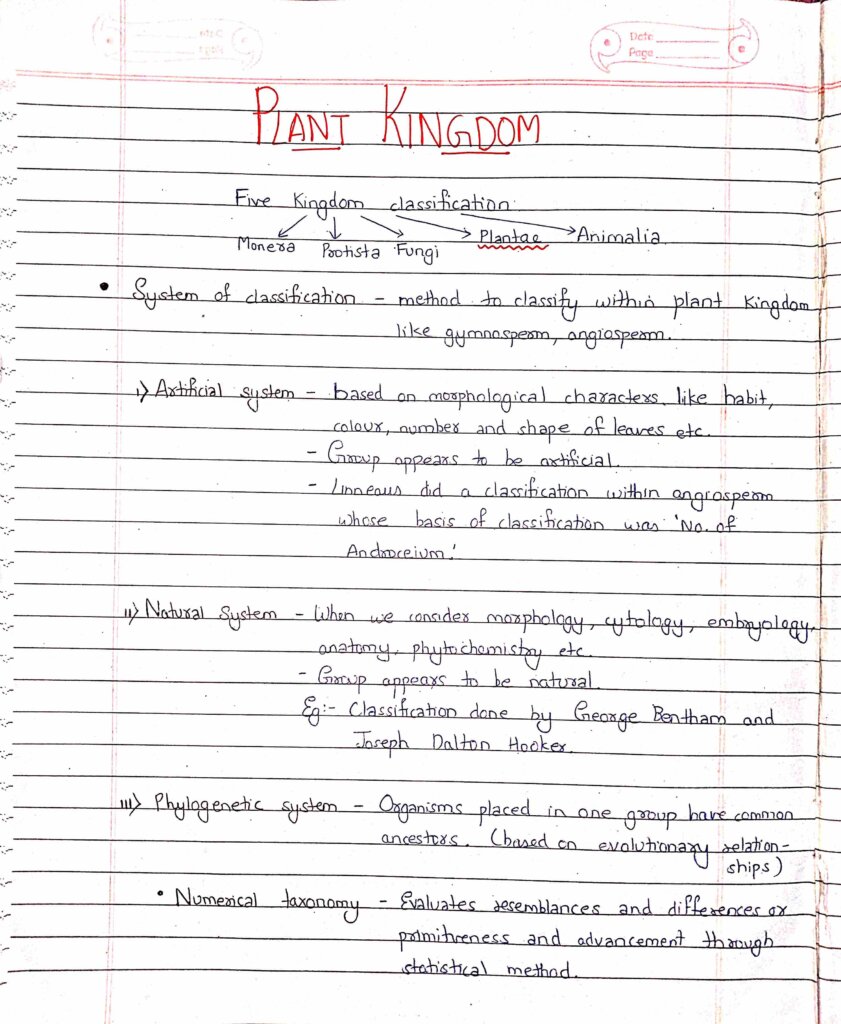 Date
Page
PLANT KINGDOM
Five Kingdom classification
Monera Protista Fungi Plantae Animalia
• System of classification - method to classify within plant Kingdom
like gymnosperm, angiosperm.
i) Artificial system - based on morphological characters like habit,
colour, number and shape of leaves etc.
- Group appears to be artificial.
- Linneaus did a classification within angiosperm
whose basis of classification was 'No. of
Androceium.'
ii) Natural System - When we consider morphology, cytology, embryology,
anatomy, phytochemistry etc.
- Group appears to be natural.
Eg:- Classification done by George Bentham and
Joseph Dalton Hooker.
iii) Phylogenetic system - Organisms placed in one group have common
ancestors. (based on evolutionary relation-
ships)
• Numerical taxonomy - Evaluates resemblances and differences or
primitiveness and advancement through
statistical method.